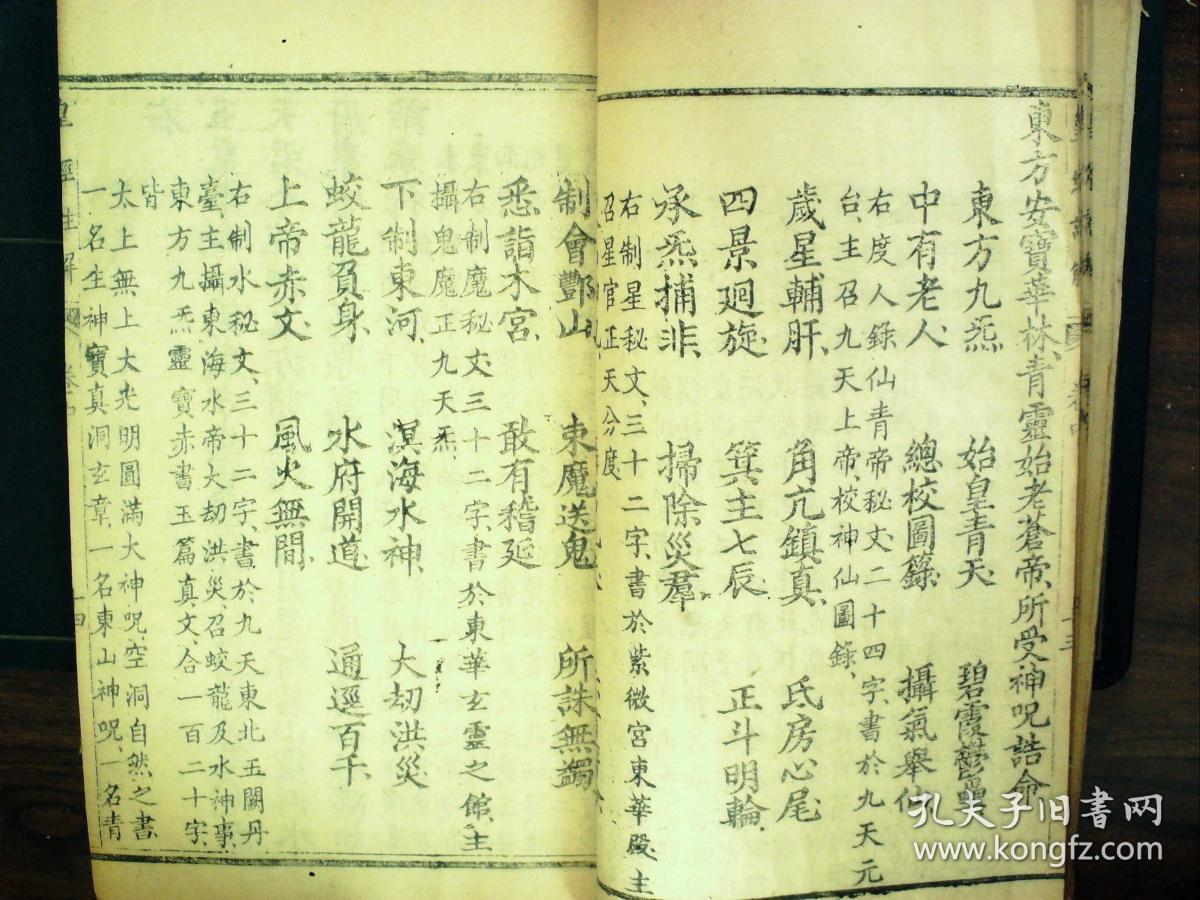 東方安寶華林、青靈始老蒼帝、所受神呪誥命
東方九炁　始皇青天　碧霞鬱壘
中有老人　總校圖籙　攝氣舉仙
右度人錄仙青帝秘文二十四字、書於九天元
台、主召九天上帝、校神仙圖錄、
歲星輔肝、　角亢鎮真、　氐房心尾
四景廻旋、　箕主七辰、　正斗明輪、
承炁捕非、　掃除災羣、
右制星秘文、三十二字、書於紫微宮東華殿、主
召星官正天分度、
制會酆山　束魔送鬼、　所誅無蠲
悉詣木宮、　敢有稽延
右制魔秘文三十二字、書於東華玄靈之館、主
攝鬼魔正九天炁、
下制東河、　溟海水神、　大劫洪災
蛟龍負身、　水府開道、　通逕百千、
上帝赤文、　風火無間、
右制水秘文、三十二字、書於九天東北五闕丹
臺、主攝東海水帝大劫洪災、召蛟龍及水神事、
東方九炁靈寶赤書玉篇真文、合一百二十字、
皆
太上無上大光明圓滿大神呪空洞自然之書、
一名生神寶真洞玄章、一名東山神呪、一名青
皇經註解　卷四　十四
孔夫子旧書网
www.kongfz.com